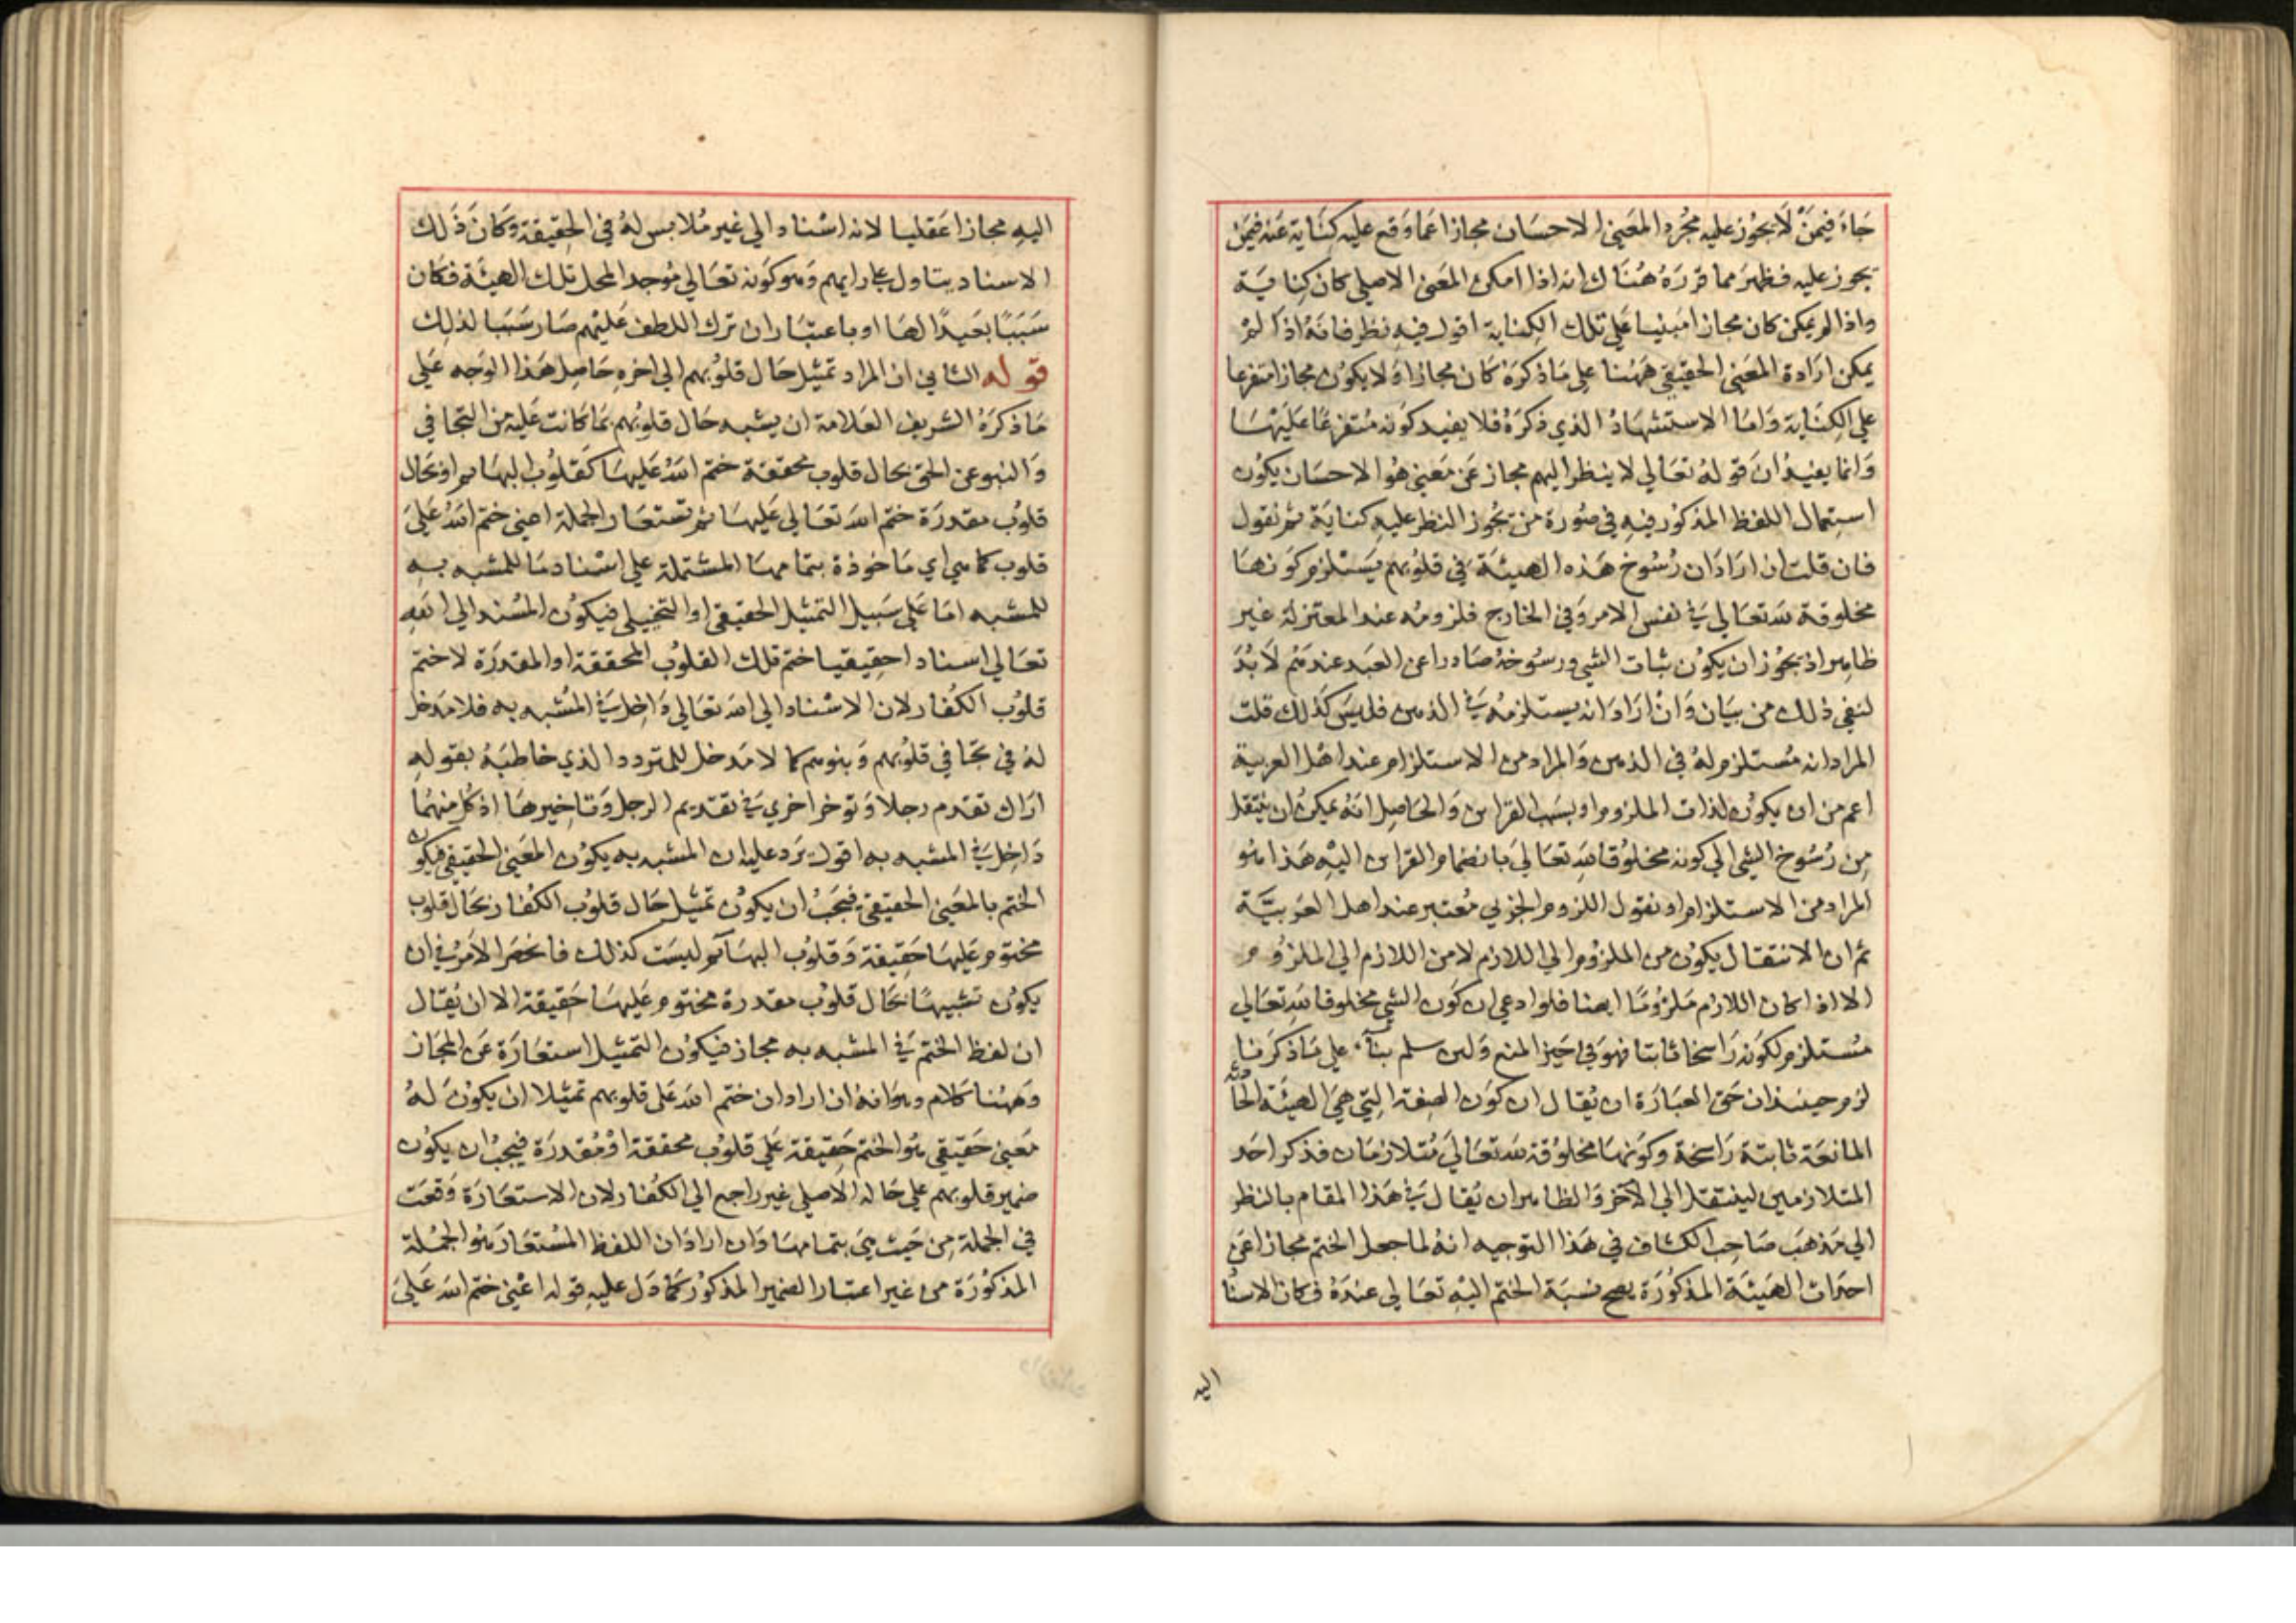 جاء فيمن لا يجوز عليه مجرد المعنى الاحسان مجازا عما وقع عليه كناية عنه فيمن
يجوز عليه فظهر مما قرره هناك انه اذا امكن المعنى الاصلي كان كناية
واذا لم يمكن كان مجازا مبنيا على تلك الكناية اقول فيه نظر فانه اذا لم
يمكن ارادة المعنى الحقيقي ههنا على ما ذكره كان مجازا ولا يكون مجازا متفرعا
على الكناية واما الاستشهاد الذي ذكره فلا يفيد كونه متفرعا عليها
وانما يفيد ان قوله تعالي لا ينظر اليهم مجاز عن معنى هو الاحسان يكون
استعمال اللفظ المذكور فيه في صورة من تجوز النظر عليه كناية ثم نقول
فان قلت ان اراد ان رسوخ هذه الهيئة في قلوبهم يستلزم كونها
مخلوقة لله تعالي في نفس الامر وفي الخارج فلزومه عند المعتزلة غير
ظاهر اذ يجوز ان يكون ثبات الشي ورسوخه صادرا عن العبد عندهم لا بد
لنفي ذلك من بيان وان اراد انه يستلزمه في الذهن فليس كذلك قلت
المراد انه مستلزم له في الذهن والمراد من الاستلزام عند اهل العربية
اعم من ان يكون لذات الملزوم او بسبب القراين والحاصل انه يمكن ان ينتقل
من رسوخ الشي الي كونه مخلوقا لله تعالي بانضمام القراين اليه هذا هو
المراد من الاستلزام او نقول اللزوم الجزيي معتبر عند اهل العربية
ثم ان الانتقال يكون من الملزوم الي اللازم لا من اللازم الي الملزوم
الا اذا كان اللازم ملزوما ايضا فلو ادعي ان كون الشي مخلوقا لله تعالي
مستلزم لكونه راسخا ثابتا فهو في حيز المنع ولئن سلم بناء على ما ذكرنا
لزم حينئذ ان حق العبارة ان يقال ان كون الصفة التي هي الهيئة الحادثة
المانعة ثابتة راسخة وكونها مخلوقة لله تعالي متلازمان فذكر احد
المتلازمين لينتقل الي الآخر والظاهر ان يقال في هذا المقام بالنظر
الي مذهب صاحب الكشاف في هذا التوجيه انه لما جعل الختم مجازا عن
احداث الهيئة المذكورة يصح نسبة الختم اليه تعالي عنده فكان الاسنا
اليه
اليه مجازا عقليا لانه اسناد الي غير ملابس له في الحقيقة وكان ذلك
الاسناد بتاول على رايهم وهو كونه تعالي موجد المحل تلك الهيئة فكان
سببا بعيدا لها او باعتبار ان ترك اللطف عليهم صار سببا لذلك
قوله الثاني ان المراد تمثيل حال قلوبهم الي اخره حاصل هذا الوجه على
ما ذكره الشريف العلامة ان يشبه حال قلوبهم بما كانت عليه من التجافي
والنبو عن الحق بحال قلوب محققة ختم الله عليها كقلوب البهايم او بحال
قلوب مقدرة ختم الله تعالي عليها ثم تستعار الجملة اعني ختم الله على
قلوب كما هي اي ماخوذة بتمامها المشتملة علي اسناد ما للمشبه به
للمشبه اما على سبيل التمثيل الحقيقي او التخييلي فيكون المسند الي الله
تعالي اسنادا حقيقيا ختم تلك القلوب المحققة او المقدرة لا ختم
قلوب الكفار لان الاسناد الي الله تعالي داخل في المشبه به فلا مدخل
له في تجافي قلوبهم ونبوهم كما لا مدخل للمتردد الذي خاطبه بقوله
اراك تقدم رجلا وتوخر اخري في تقديم الرجل وتاخيرها اذ كل منهما
داخل في المشبه به اقول يرد عليه ان المشبه به يكون المعنى الحقيقي فيكون
الختم بالمعنى الحقيقي فيجب ان يكون تمثيل حال قلوب الكفار بحال قلوب
مختوم عليها حقيقة وقلوب البهايم ليست كذلك فانحصر الامر في ان
يكون تشبيها بحال قلوب مقدرة مختوم عليها حقيقة الا ان يقال
ان لفظ الختم في المشبه به مجاز فيكون التمثيل استعارة عن المجاز
وههنا كلام وهو انه ان اراد ان ختم الله على قلوبهم تمثيلا ان يكون له
معنى حقيقي هو الختم حقيقة على قلوب محققة او مقدرة فيجب ان يكون
ضمير قلوبهم على حاله الاصلي غير راجع الي الكفار لان الاستعارة وقعت
في الجملة من حيث هي بتمامها وان اراد ان اللفظ المستعار هو الجملة
المذكورة من غير اعتبار الضمير المذكور كما دل عليه قوله اعني ختم الله على